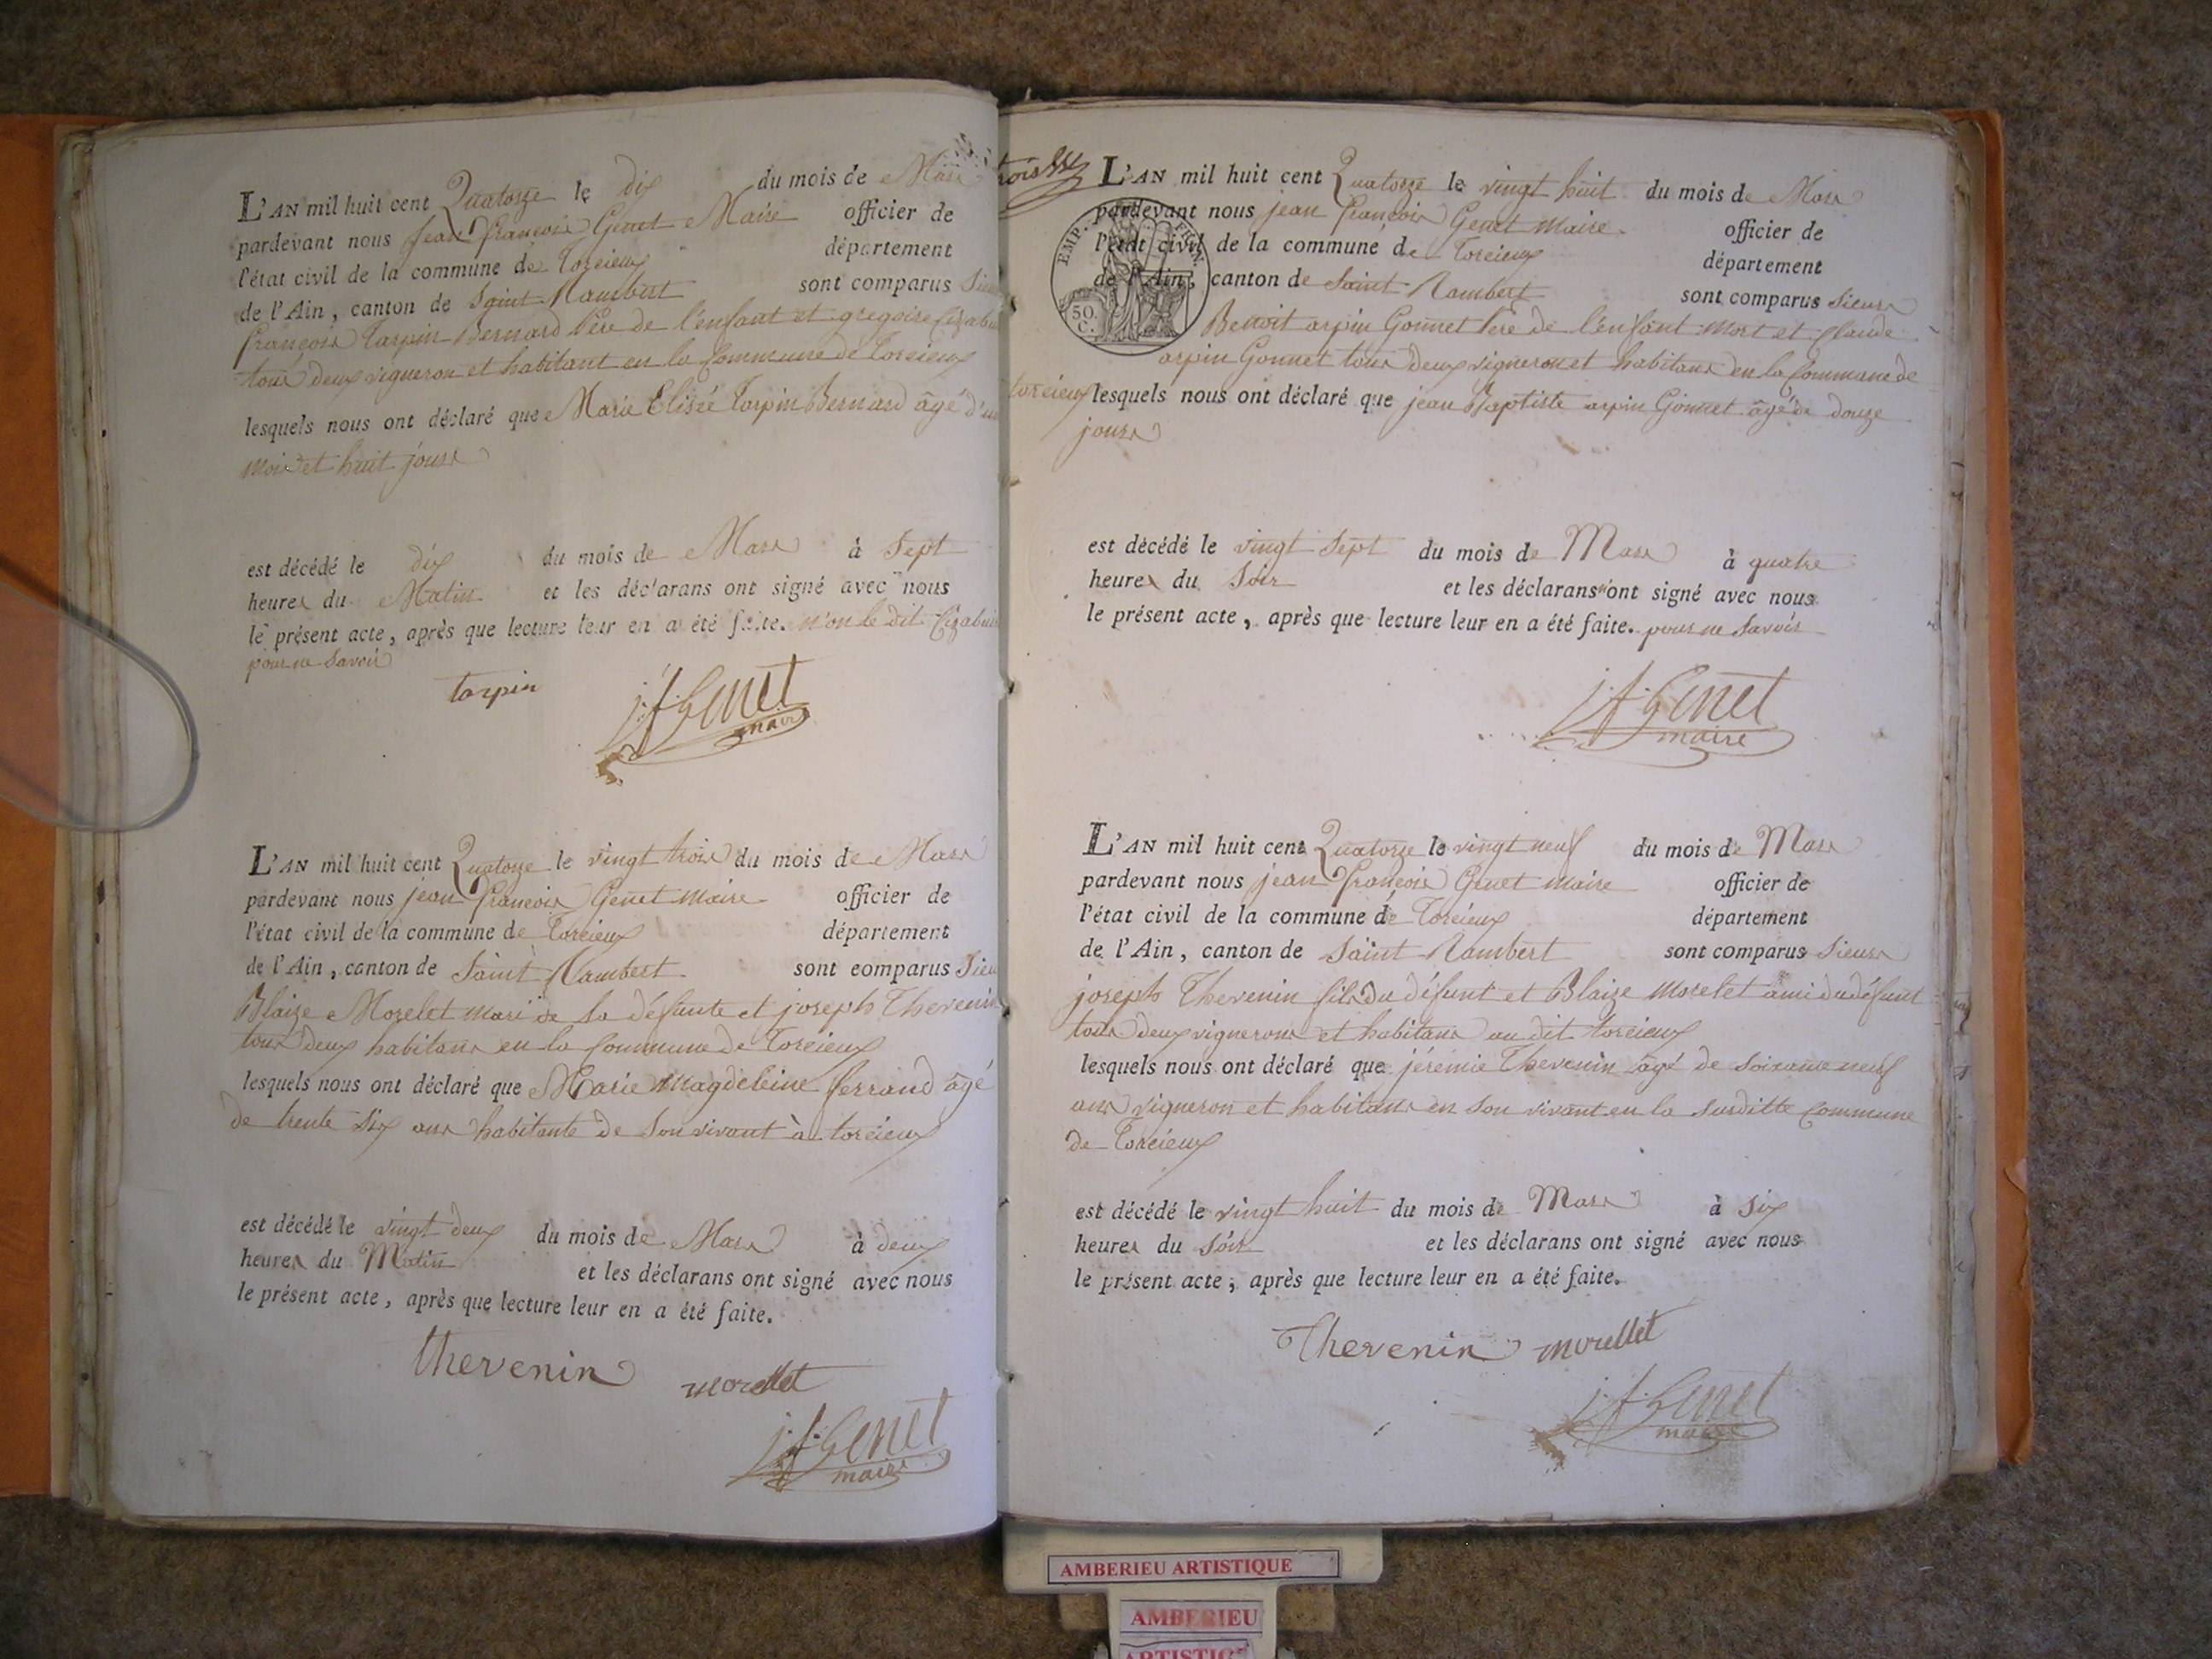 L'AN mil huit cent Quatorze le dix du mois de Mars
pardevant nous jean françois Genet Maire officier de
l'état civil de la commune de Torcieux département
de l'Ain, canton de Saint Rambert sont comparus
françois Tarpin Bernard Père de l'enfant et gregoire
tous deux vigneron et habitant en la Commune de Torcieux
lesquels nous ont déclaré que Marie Elisée Tarpin Bernard âgé d'un
mois et huit jours
est décédé le dix du mois de Mars à Sept
heures du Matin et les déclarans ont signé avec nous
le présent acte, après que lecture leur en a été faite. non le dit
pour ne Savoir
tarpin j. f. Genet
maire
L'AN mil huit cent Quatorze le vingt trois du mois de Mars
pardevant nous jean françois Genet maire officier de
l'état civil de la commune de Torcieux département
de l'Ain, canton de Saint Rambert sont comparus
Blaize Morelet mari de la défunte et joseph Thevenin
tous deux habitans en la Commune de Torcieux
lesquels nous ont déclaré que Marie Magdeleine ferrand âgé
de trente Six ans habitante de Son vivant à torcieux
est décédé le vingt deux du mois de Mars à deux
heures du Matin et les déclarans ont signé avec nous
le présent acte, après que lecture leur en a été faite.
thevenin morellet
j. f. Genet
maire
L'AN mil huit cent Quatorze le vingt huit du mois de Mars
pardevant nous jean françois Genet maire officier de
l'état civil de la commune de Torcieux département
de l'Ain, canton de Saint Rambert sont comparus Sieurs
EMP. FRAN.
50.
C.
Benoit arpin Gonnet Père de l'enfant mort et Claude
arpin Gonnet tous deux vigneron et habitans en la Commune de
torcieux lesquels nous ont déclaré que jean Baptiste arpin Gonnet âgé de douze
jours
est décédé le vingt Sept du mois de Mars à quatre
heures du Soir et les déclarans n'ont signé avec nous
le présent acte, après que lecture leur en a été faite. pour ne Savoir
j. f. Genet
maire
L'AN mil huit cent Quatorze le vingt neuf du mois de Mars
pardevant nous jean françois Genet maire officier de
l'état civil de la commune de Torcieux département
de l'Ain, canton de Saint Rambert sont comparus Sieurs
joseph Thevenin fils du défunt et Blaize Morelet ami du défunt
tous deux vignerons et habitans au dit torcieux
lesquels nous ont déclaré que jérémie Thevenin âgé de Soixante neuf
ans vigneron et habitans en son vivant en la Susditte Commune
de Torcieux
est décédé le vingt huit du mois de Mars à Six
heures du Soir et les déclarans ont signé avec nous
le présent acte, après que lecture leur en a été faite.
Thevenin morellet
j. f. Genet
maire
AMBERIEU ARTISTIQUE
AMBERIEU
ARTISTIQUE